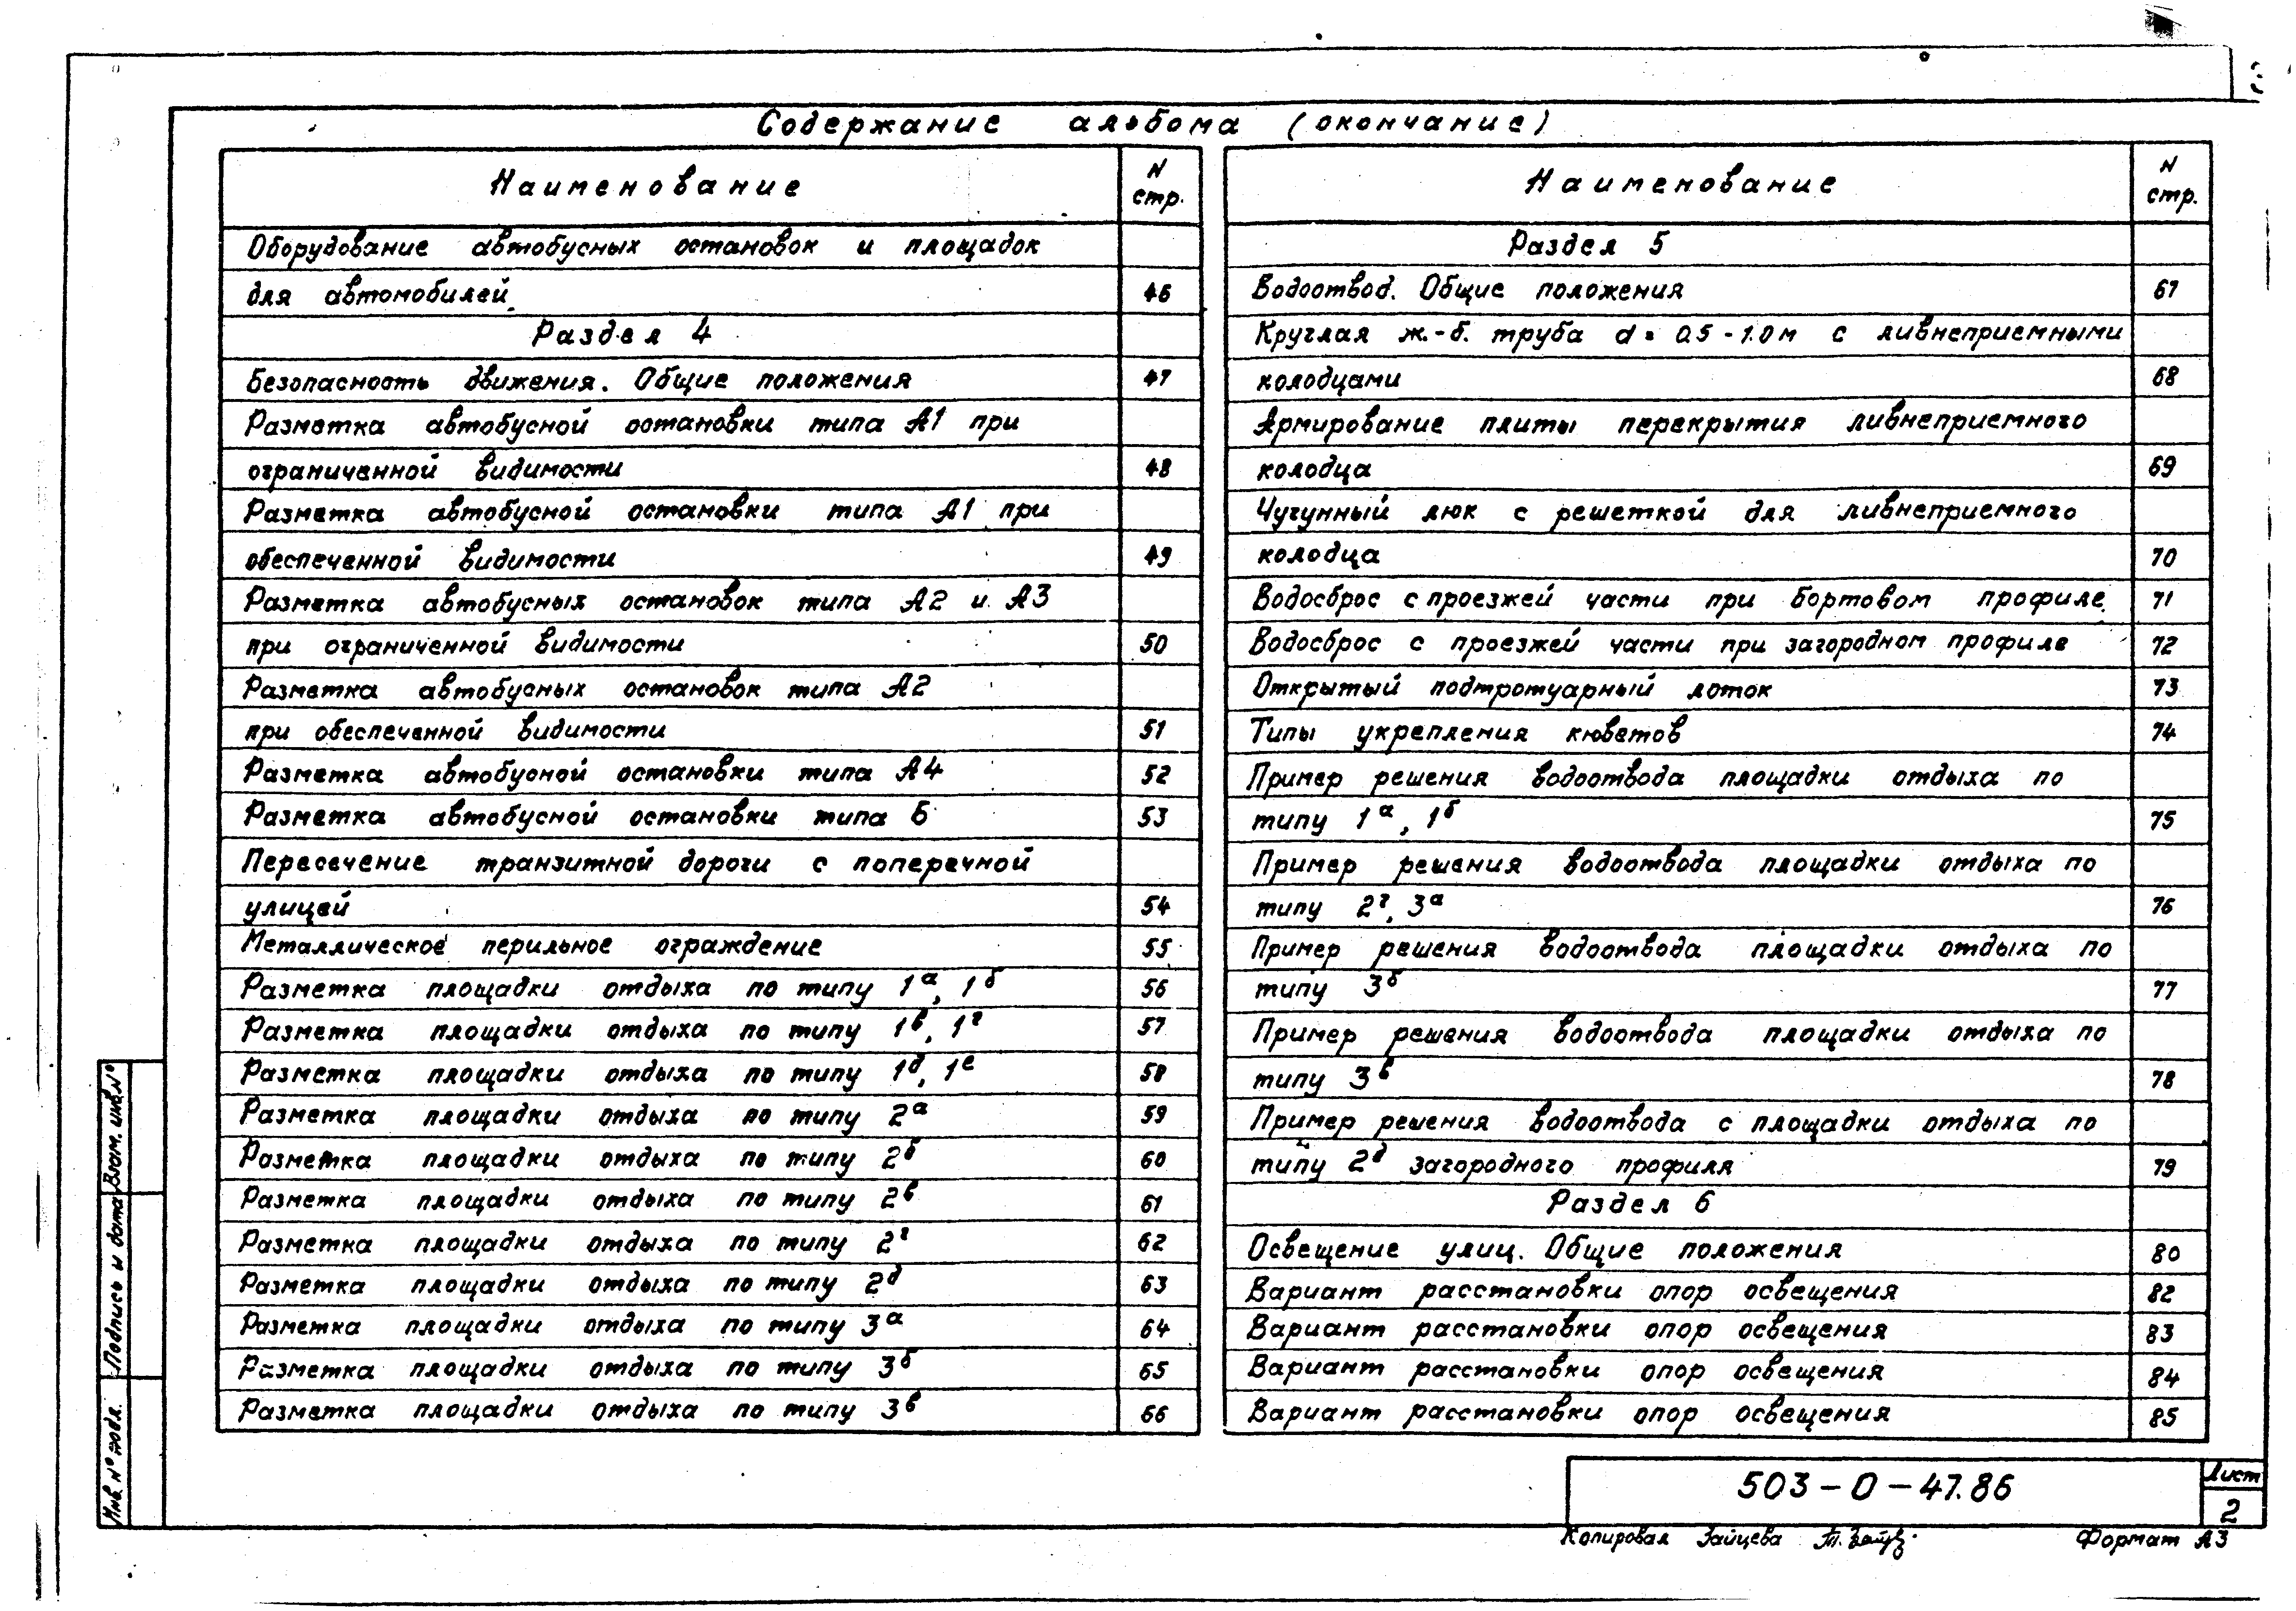 Содержание альбома (окончание)
Наименование
N стр.
Оборудование автобусных остановок и площадок
для автомобилей 46
Раздел 4
Безопасность движения. Общие положения 47
Разметка автобусной остановки типа А1 при
ограниченной видимости 48
Разметка автобусной остановки типа А1 при
обеспеченной видимости 49
Разметка автобусных остановок типа А2 и А3
при ограниченной видимости 50
Разметка автобусных остановок типа А2
при обеспеченной видимости 51
Разметка автобусной остановки типа А4 52
Разметка автобусной остановки типа Б 53
Пересечение транзитной дороги с поперечной
улицей 54
Металлическое перильное ограждение 55
Разметка площадки отдыха по типу 1а, 1б 56
Разметка площадки отдыха по типу 1в, 1г 57
Разметка площадки отдыха по типу 1д, 1е 58
Разметка площадки отдыха по типу 2а 59
Разметка площадки отдыха по типу 2б 60
Разметка площадки отдыха по типу 2в 61
Разметка площадки отдыха по типу 2г 62
Разметка площадки отдыха по типу 2д 63
Разметка площадки отдыха по типу 3а 64
Разметка площадки отдыха по типу 3б 65
Разметка площадки отдыха по типу 3в 66
Наименование
N стр.
Раздел 5
Водоотвод. Общие положения 67
Круглая ж.-б. труба d = 0.5 - 1.0 м с ливнеприемными
колодцами 68
Армирование плиты перекрытия ливнеприемного
колодца 69
Чугунный люк с решеткой для ливнеприемного
колодца 70
Водосброс с проезжей части при бортовом профиле 71
Водосброс с проезжей части при загородном профиле 72
Открытый подтротуарный лоток 73
Типы укрепления кюветов 74
Пример решения водоотвода площадки отдыха по
типу 1а, 1б 75
Пример решения водоотвода площадки отдыха по
типу 2г, 3а 76
Пример решения водоотвода площадки отдыха по
типу 3б 77
Пример решения водоотвода площадки отдыха по
типу 3в 78
Пример решения водоотвода с площадки отдыха по
типу 2д загородного профиля 79
Раздел 6
Освещение улиц. Общие положения 80
Вариант расстановки опор освещения 82
Вариант расстановки опор освещения 83
Вариант расстановки опор освещения 84
Вариант расстановки опор освещения 85
Инв. № подл.
Подпись и дата
Взам. инв. №
503-0-47.86
Лист
2
Копировал Зайцева
Формат А3